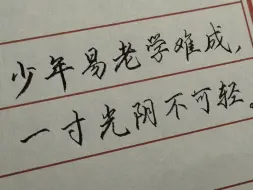 少年易老学难成，
一寸光阴不可轻。